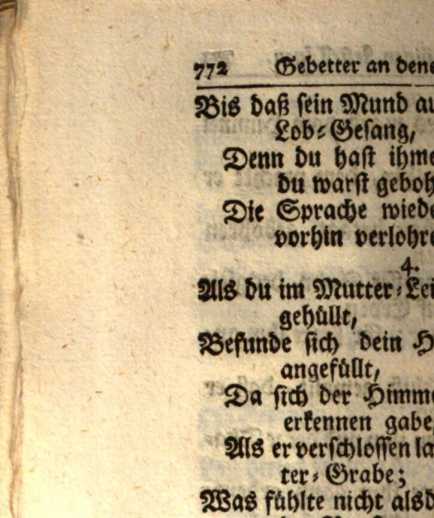 772 Gebetter an dene
Bis daß sein Mund au
Lob-Gesang,
Denn du hast ihme
du warst geboh
Die Sprache wiede
vorhin verlohre
4.
Als du im Mutter-Lei
gehüllt,
Befunde sich dein H
angefüllt,
Da sich der Himme
erkennen gabe,
Als er verschlossen la
ter-Grabe;
Was fühlte nicht alsd